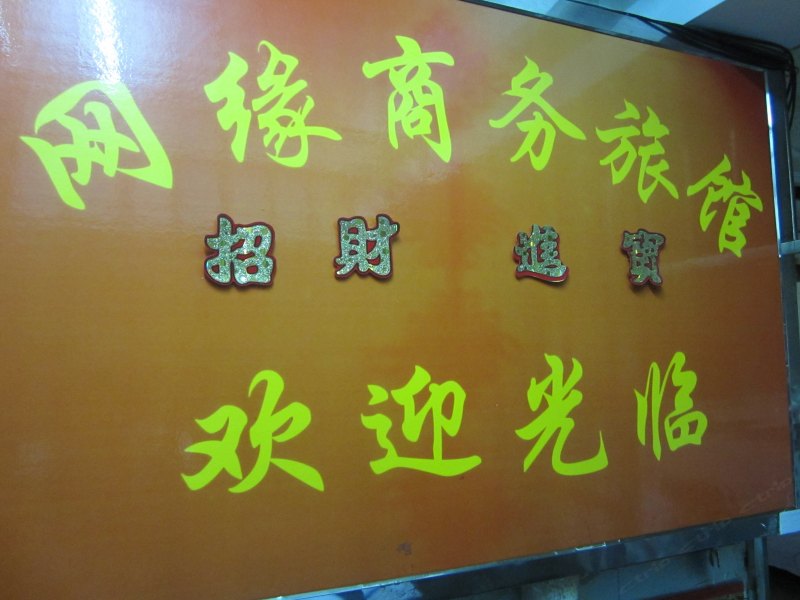 网缘商务旅馆
招財進寶
欢迎光临